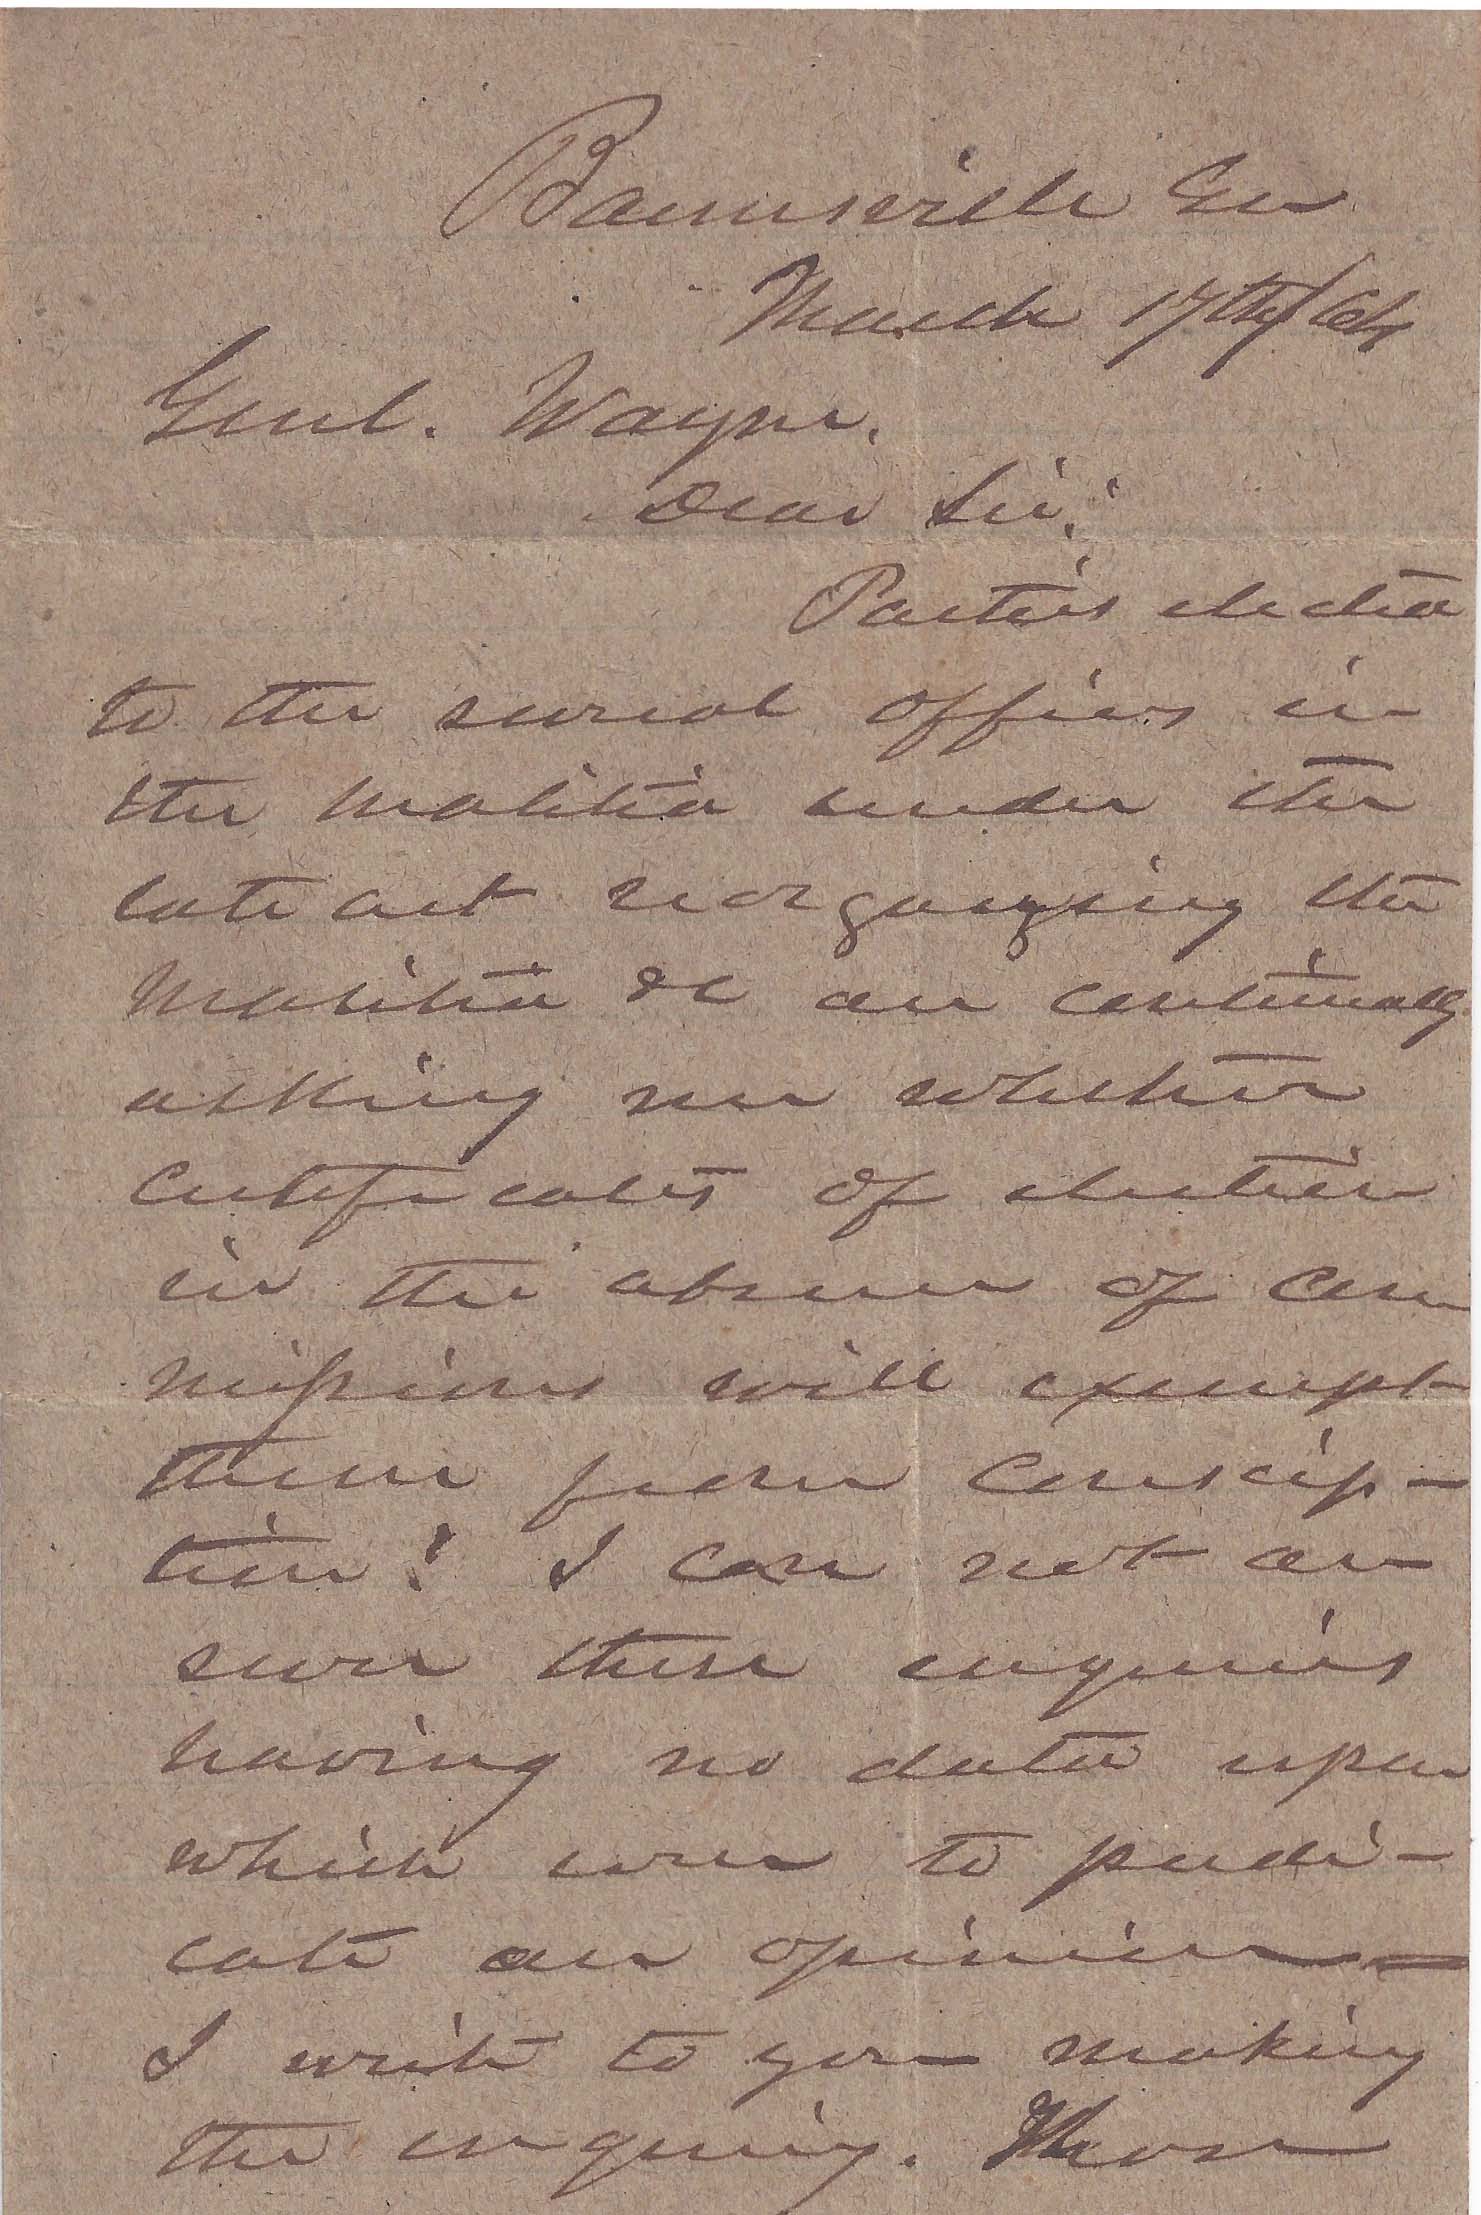 Barnesville Ga
March 17th/64
Genl. Wayne.
Dear Sir:
Parties elected
to the several offices in
the Malitia under the
late act reorganizing the
Malitia &c are continually
asking me whether
certificates of election
in the absence of com
missions will exempt
them from conscrip-
tion? I can not an
swer these enquiries
having no data upon
which even to predi-
cate an opinion—
I write to you making
the enquiry.